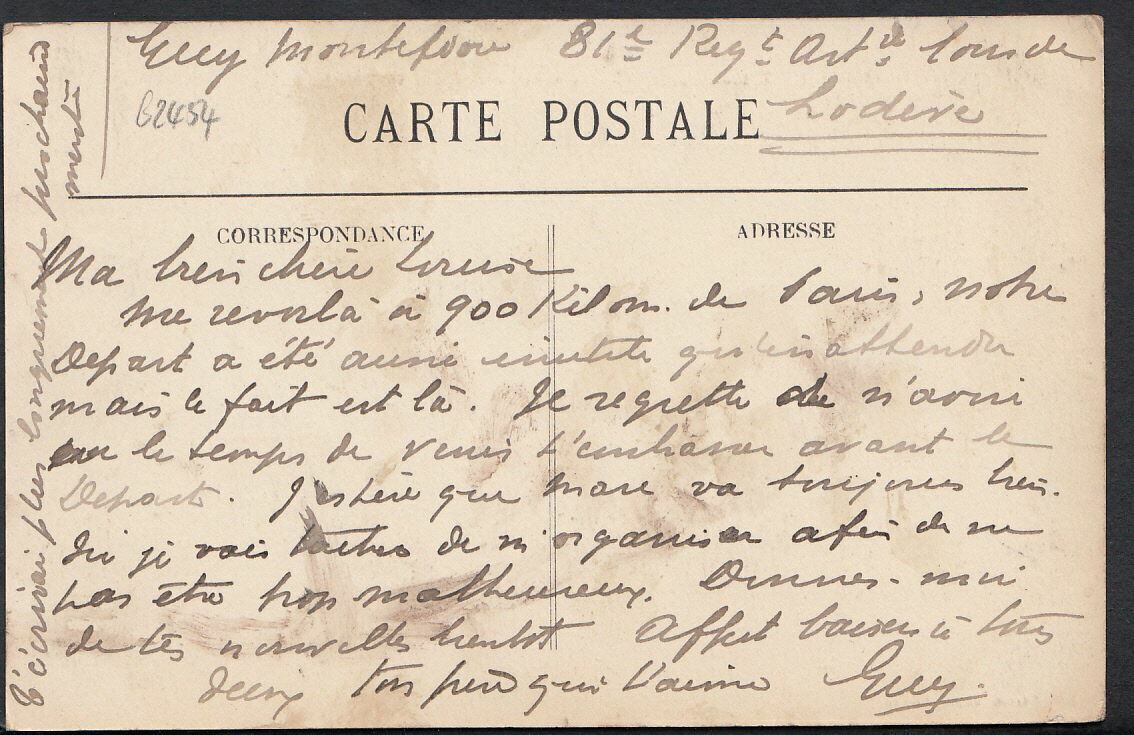 Guy Montefiore 81e Regt Artie lourde
Lodève
B2454
CARTE POSTALE
CORRESPONDANCE
ADRESSE
Ma bien chère Louise
me revoilà à 900 Kilom. de Paris, notre
Depart a été aussi qu'inattendu
mais le fait est là. Je regrette de n'avoir
eu le temps de venir t'embrasser avant le
Depart. J'espère que Marc va toujours bien.
Ici je vais tacher de m'organiser afin de ne
pas être trop malheureux. Donnes-moi
de tes nouvelles bientot Affect baisers à tous
deux ton frère qui t'aime Guy.
t'écrirai plus longuement prochaine
ment